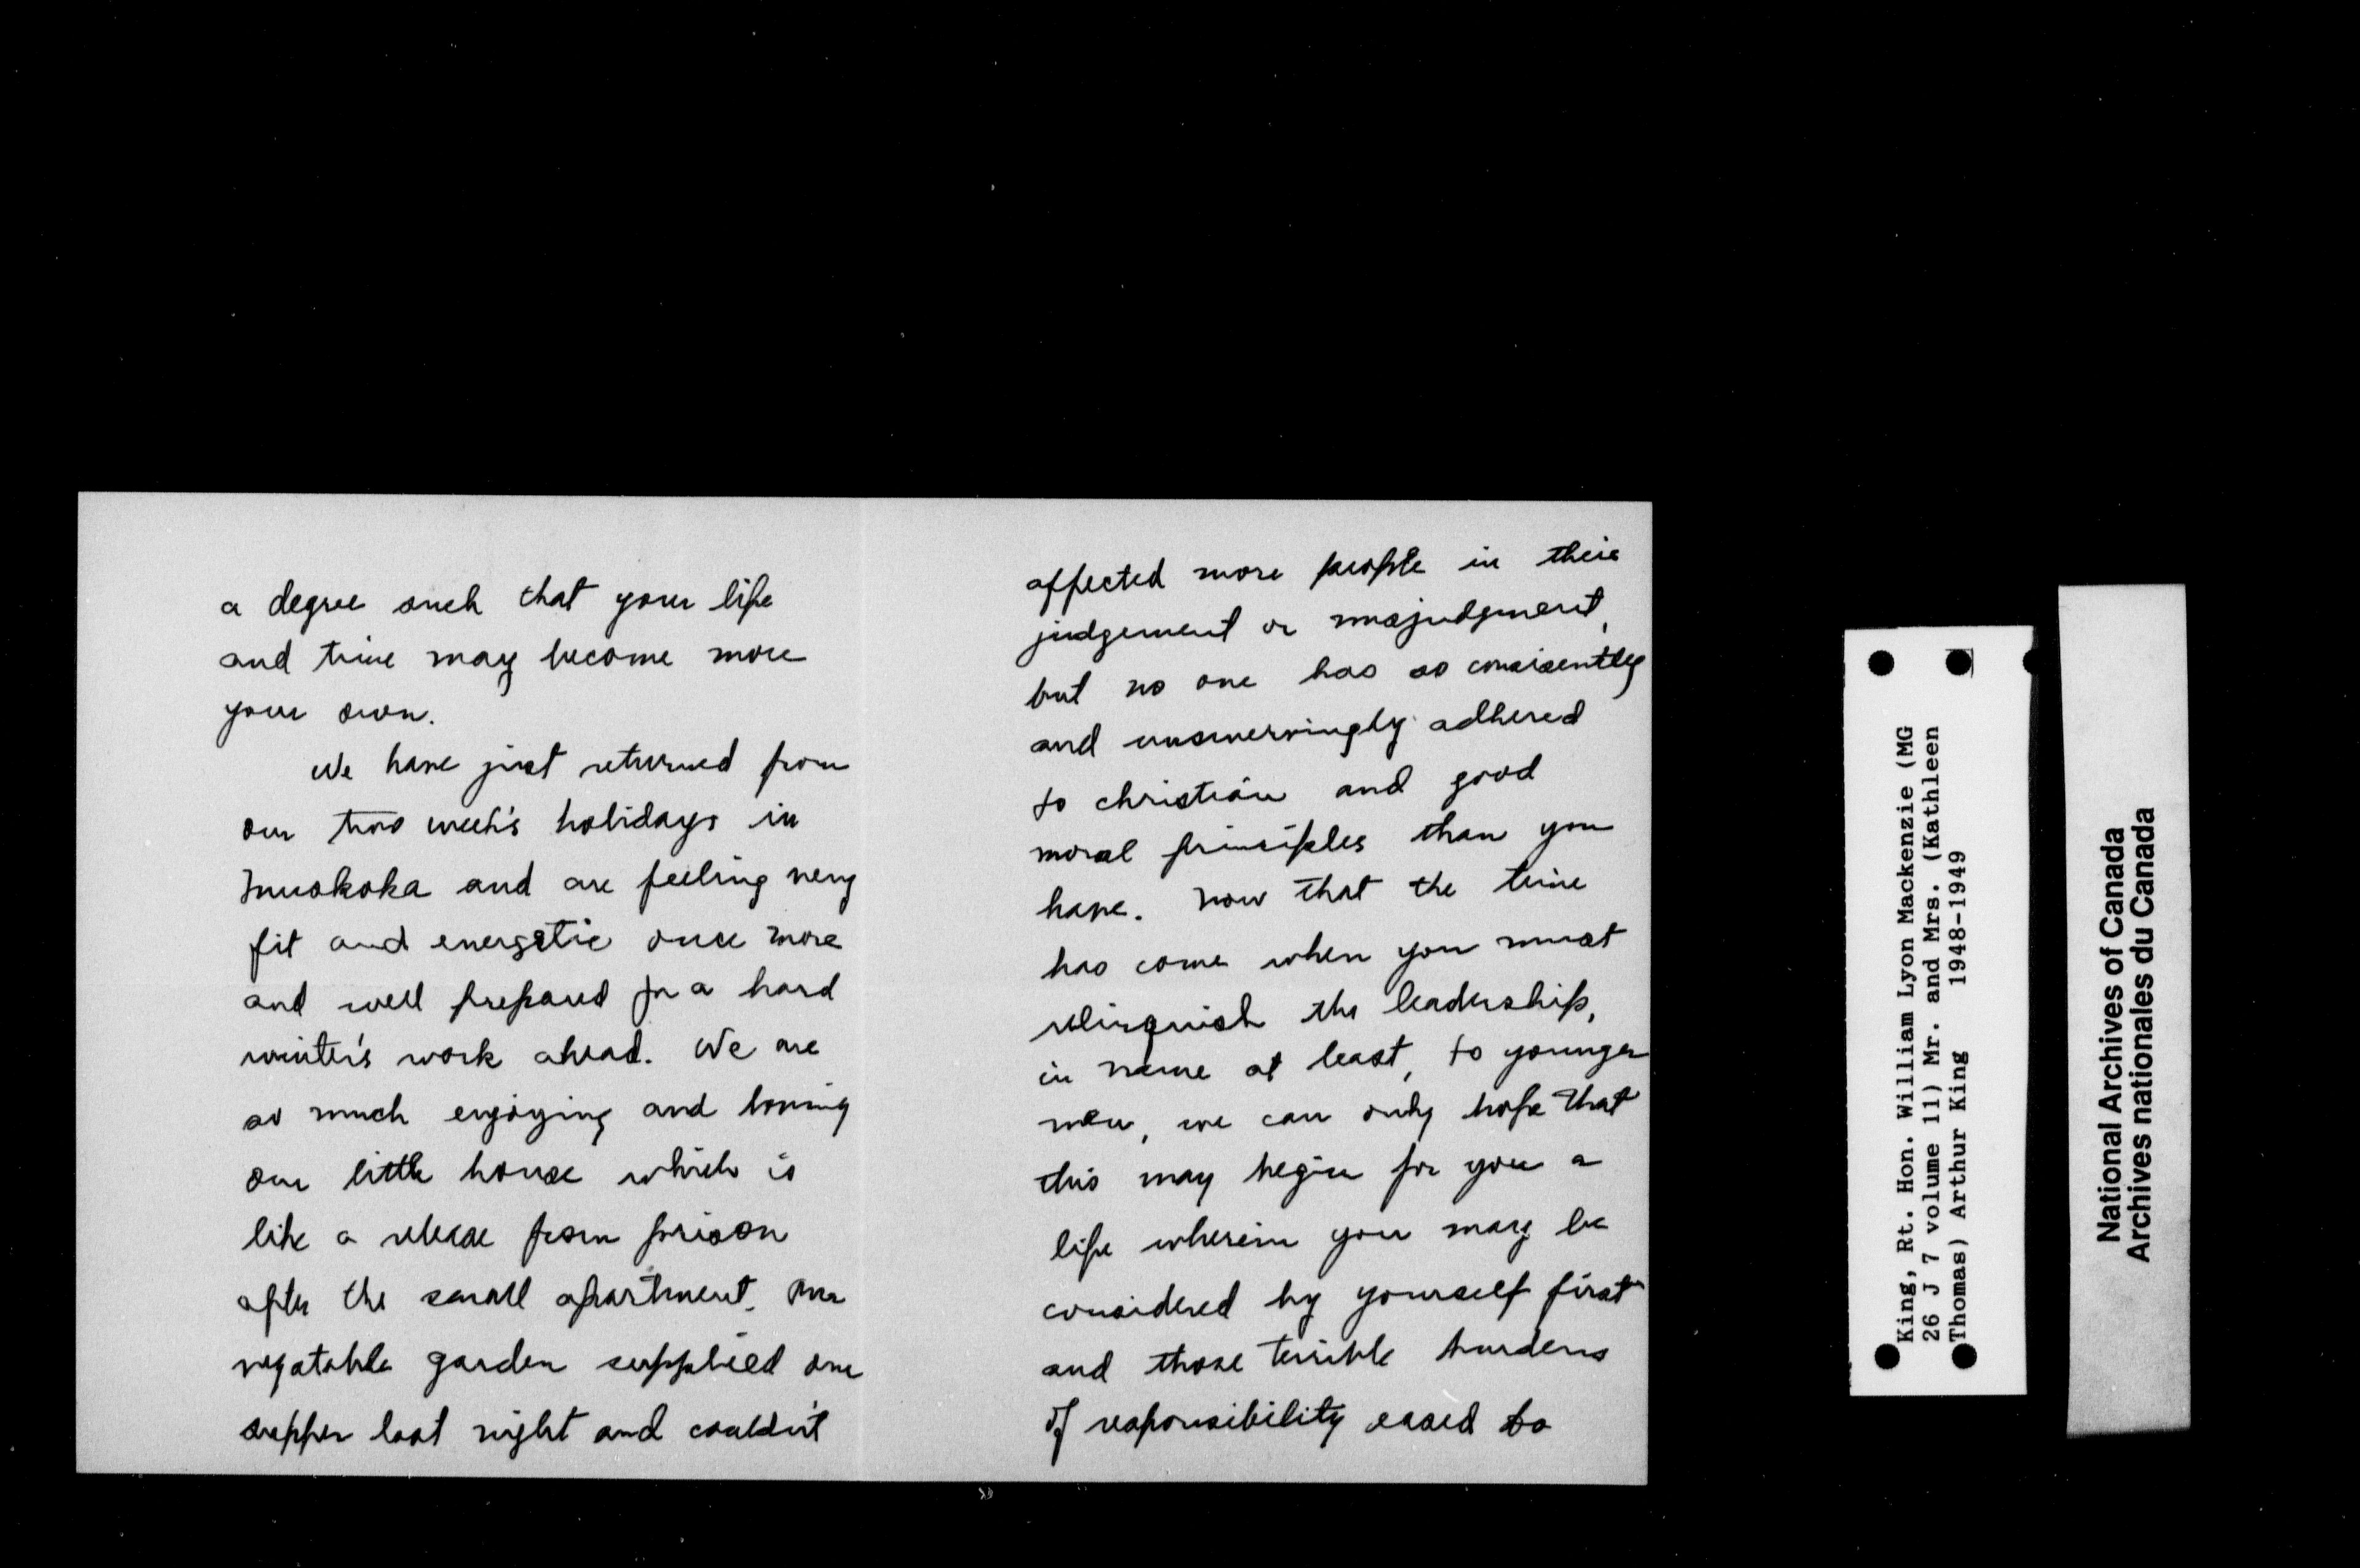 a degree such that your life
and time may become more
your own.
We have just returned from
our two week's holidays in
Muskoka and are feeling very
fit and energetic once more
and well prepared for a hard
winter's work ahead. We are
so much enjoying and loving
our little house which is
like a release from prison
after the small apartment. Our
vegatable garden supplied our
supper last night and couldn't
affected more people in their
judgement or misjudgment,
but no one has so consisently
and unswervingly adhered
to christian and good
moral principles than you
have. Now that the time
has come when you must
relinquish the leadership,
in name at least, to younger
men, we can only hope that
this may begin for you a
life wherein you may be
considered by yourself first
and those terrible burdens
of reponsibility eased to
King, Rt. Hon. William Lyon Mackenzie (MG
26 J 7 volume 11) Mr. and Mrs. (Kathleen
Thomas) Arthur King 1948-1949
National Archives of Canada
Archives nationales du Canada